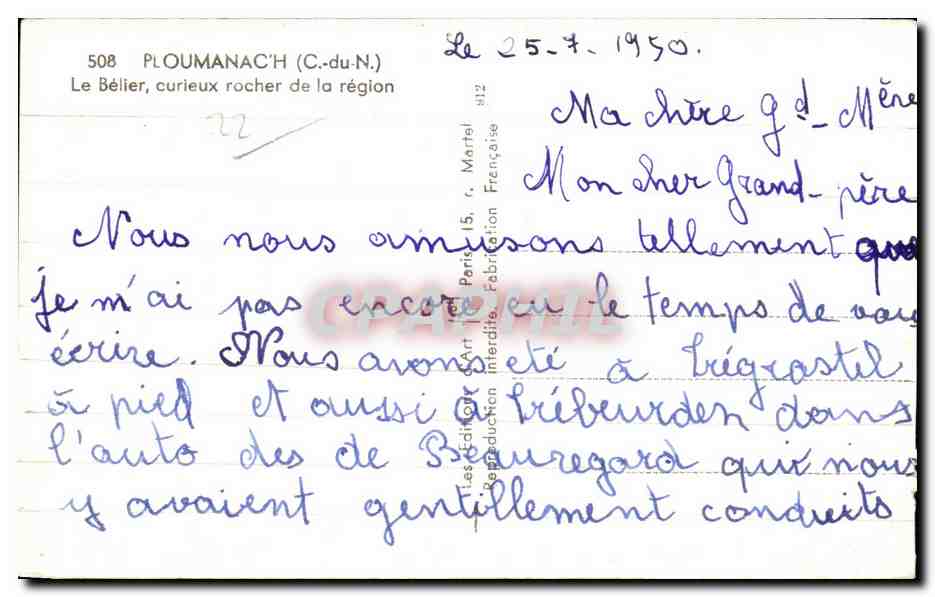 508 PLOUMANAC'H (C.-du-N.)
Le Bélier, curieux rocher de la région
22
Le 25-7-1950.
Ma chère Gd-Mère
Mon cher Grand-père
Nous nous amusons tellement que
je m'ai pas encore eu le temps de vous
écrire. Nous avons été à Trégrastel
à pied et aussi à Trébeurden dans
l'auto des de Beauregard qui nous
y avaient gentillement conduits
Les Editions d'Art Paris 15, r. Martel
Reproduction Interdite. Fabrication Française 912
CPAPHIL